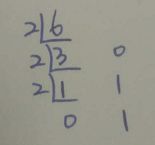 2 6
2 3 0
2 1 1
0 1